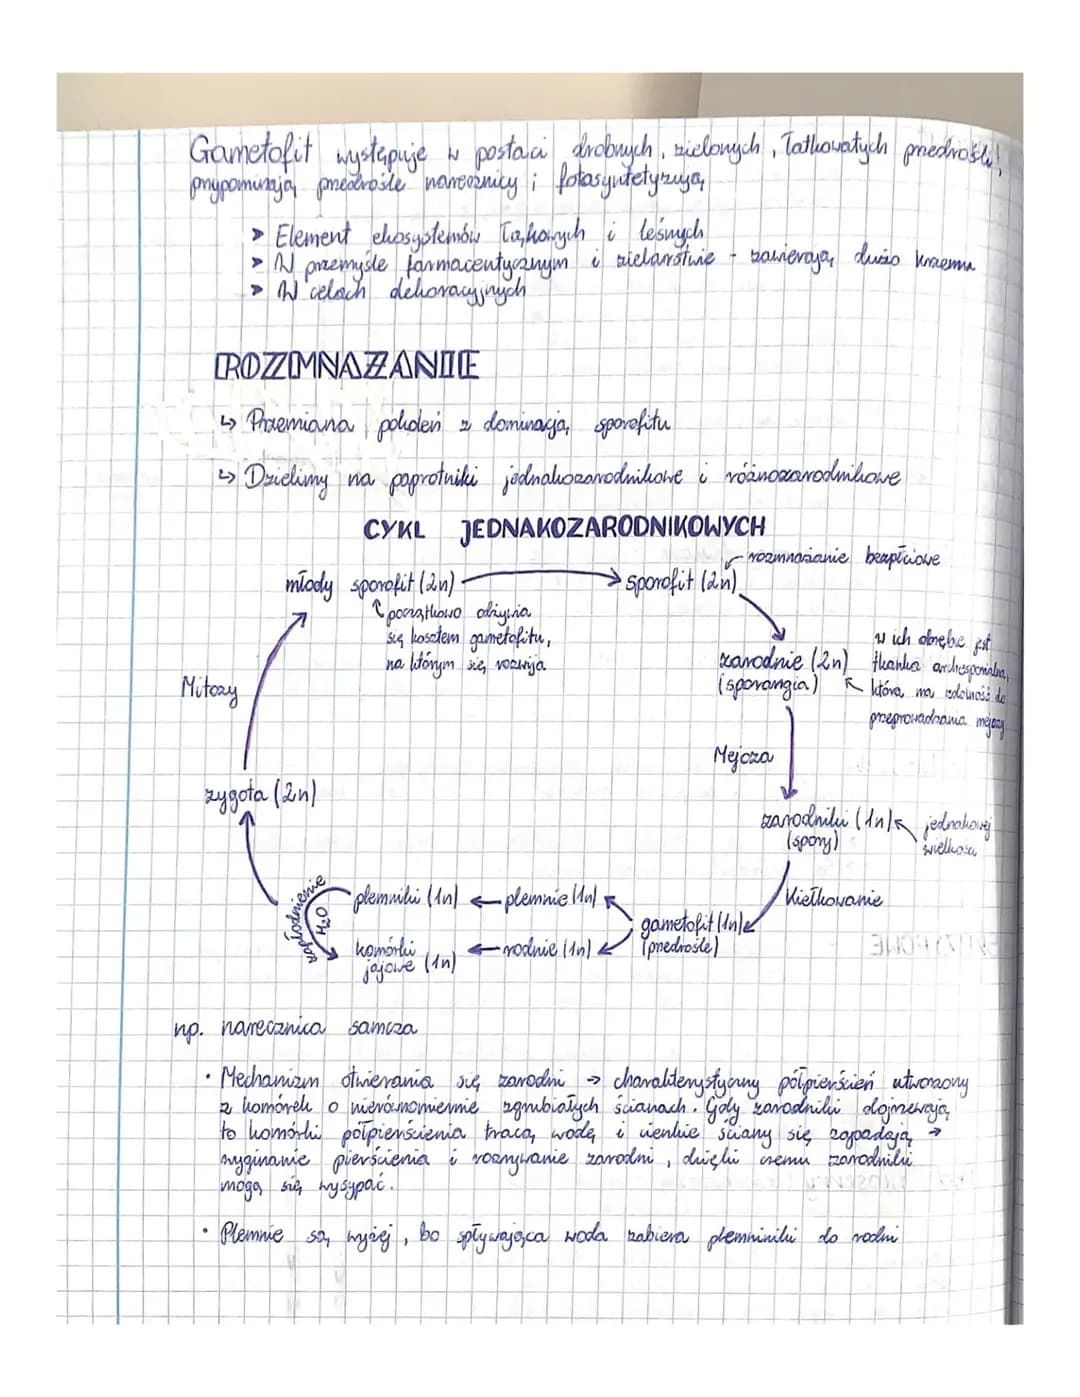 Gametofit występuje w postaci drobnych, zielonych, łatkowatych przedrośli!
przypominają przedrośle narecznicy i fotosyntetyzują
➤ Element ekosystemów łąkowych i leśnych
➤ W przemyśle farmaceutycznym i zielarstwie - zawierają dużo krzemu
➤ W celach dekoracyjnych
ROZMNAŻANIE
↳ Przemiana pokoleń z dominacją sporofitu
↳ Dzielimy na paprotniki jednakozarodnikowe i różnozarodnikowe
CYKL JEDNAKOZARODNIKOWYCH
rozmnażanie bezpłciowe
młody sporofit (2n) → sporofit (2n)
↑ początkowo odżywia
się kosztem gametofitu,
na którym się rozwija
w ich obrębie jest
tkanka archesporialna,
która ma zdolność do
przeprowadzania mejozy
zarodnie (2n)
(sporangia)
Mitozy
Mejoza
zygota (2n)
zarodniki (1n)
(spory)
jednakowej
wielkości
Kiełkowanie
zapłodnienie
H₂O
plemniki (1n) ← plemnie (1n)
gametofit (1n)
(przedrośle)
komórki
jajowe (1n) ← rodnie (1n)
np. narecznica samcza
• Mechanizm otwierania się zarodni → charakterystyczny półpierścień utworzony
z komórek o nierównomiernie zgrubiałych ścianach. Gdy zarodniki dojrzewają,
to komórki półpierścienia tracą wodę i cienkie ściany się zapadają →
wyginanie pierścienia i rozrywanie zarodni, dzięki czemu zarodniki
mogą się wysypać.
• Plemnie są wyżej, bo spływająca woda zabiera plemniniki do rodni